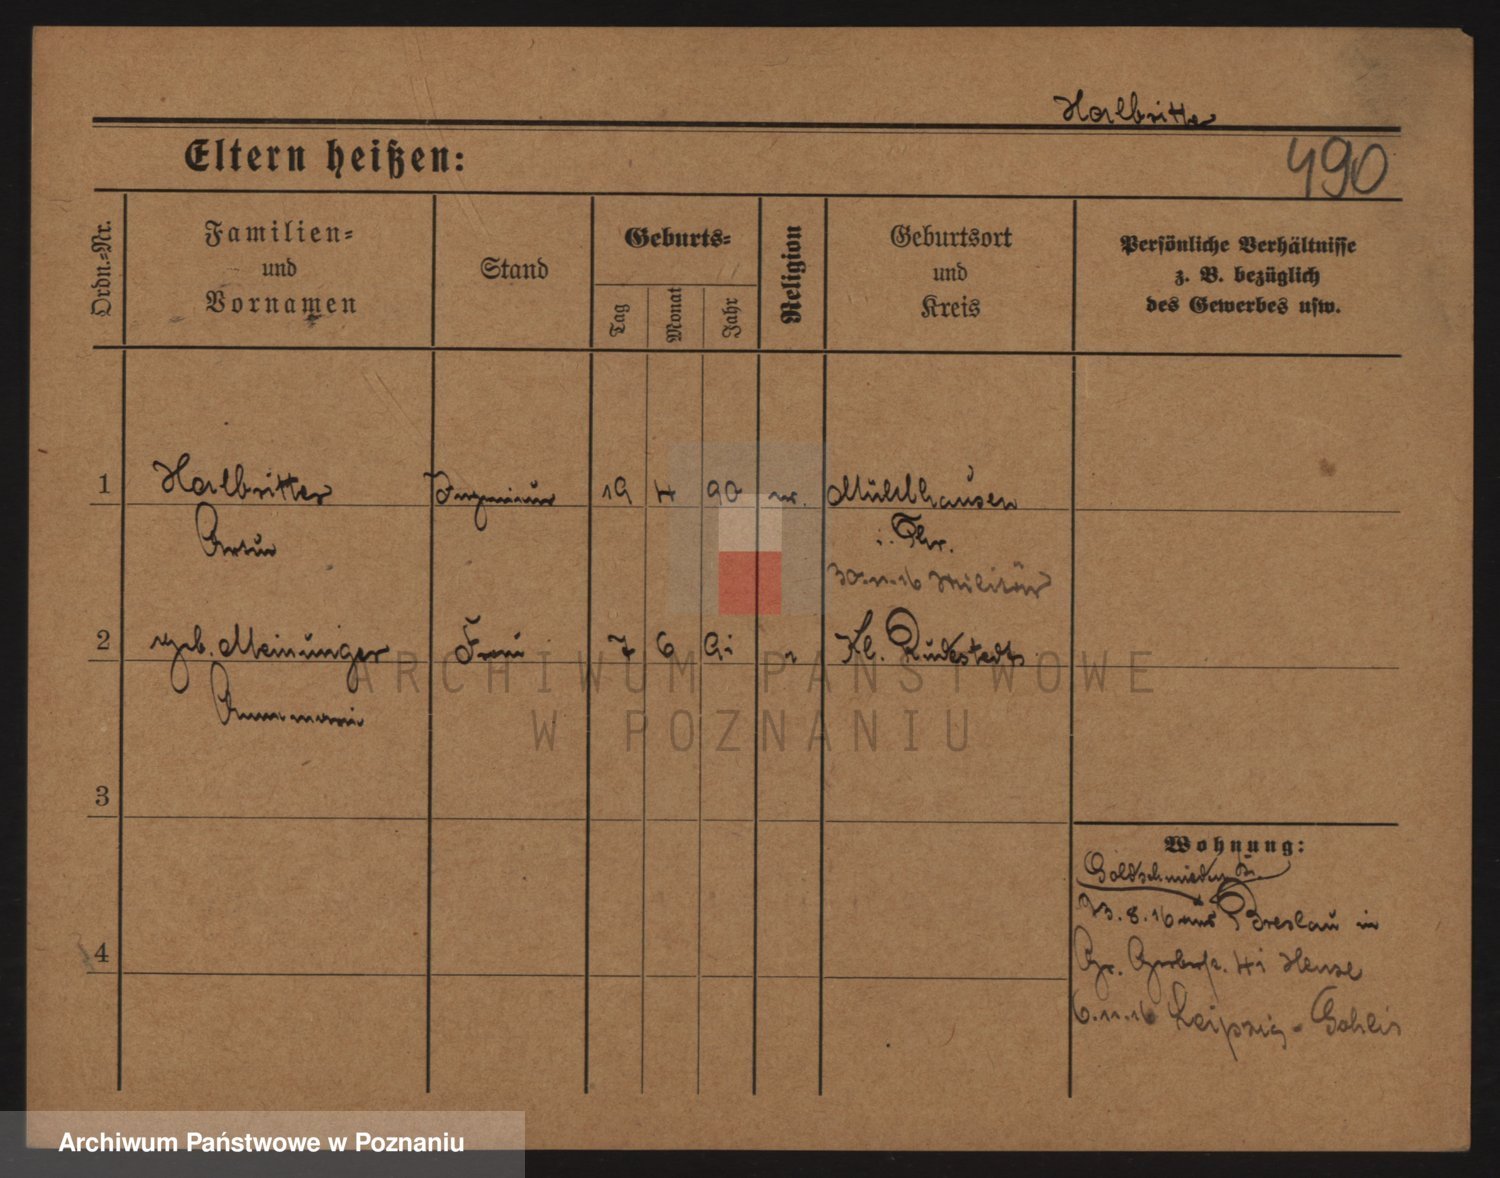 Halbritter
Eltern heißen:
490
Ordn.-Nr.
Familien-
und
Vornamen
Stand
Geburts-
Tag
Monat
Jahr
Religion
Geburtsort
und
Kreis
Persönliche Verhältnisse
z. B. bezüglich
des Gewerbes usw.
1 Halbritter Ingenieur 19 4 90 Mühlhausen
Artur i. Thr.
30.11.16 Militär
2 geb. Meininger Frau 7 6 91 Kl. Rudestedt
Annemarie
3
4
Wohnung:
Goldschmiedestr.
23.8.16 aus Breslau in
Gr. Gerberstr. 41 Hense
6.11.16 Leipzig-Gohlis
ARCHIWUM PAŃSTWOWE
W POZNANIU
Archiwum Państwowe w Poznaniu